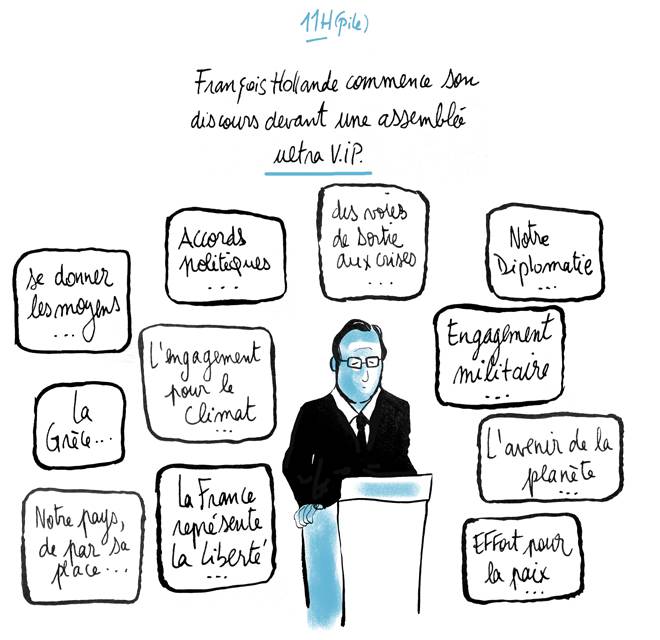 11H(pile)
François Hollande commence son
discours devant une assemblée
ultra V.iP.
se donner
les moyens
...
Accords
politiques
...
des voies
de sortie
aux crises
...
Notre
Diplomatie
...
L'engagement
pour le
climat
...
Engagement
militaire
...
La
Grèce...
L'avenir de la
planète
...
Notre pays,
de par sa
place...
La France
représente
la liberté
...
EFFort pour
la paix
...